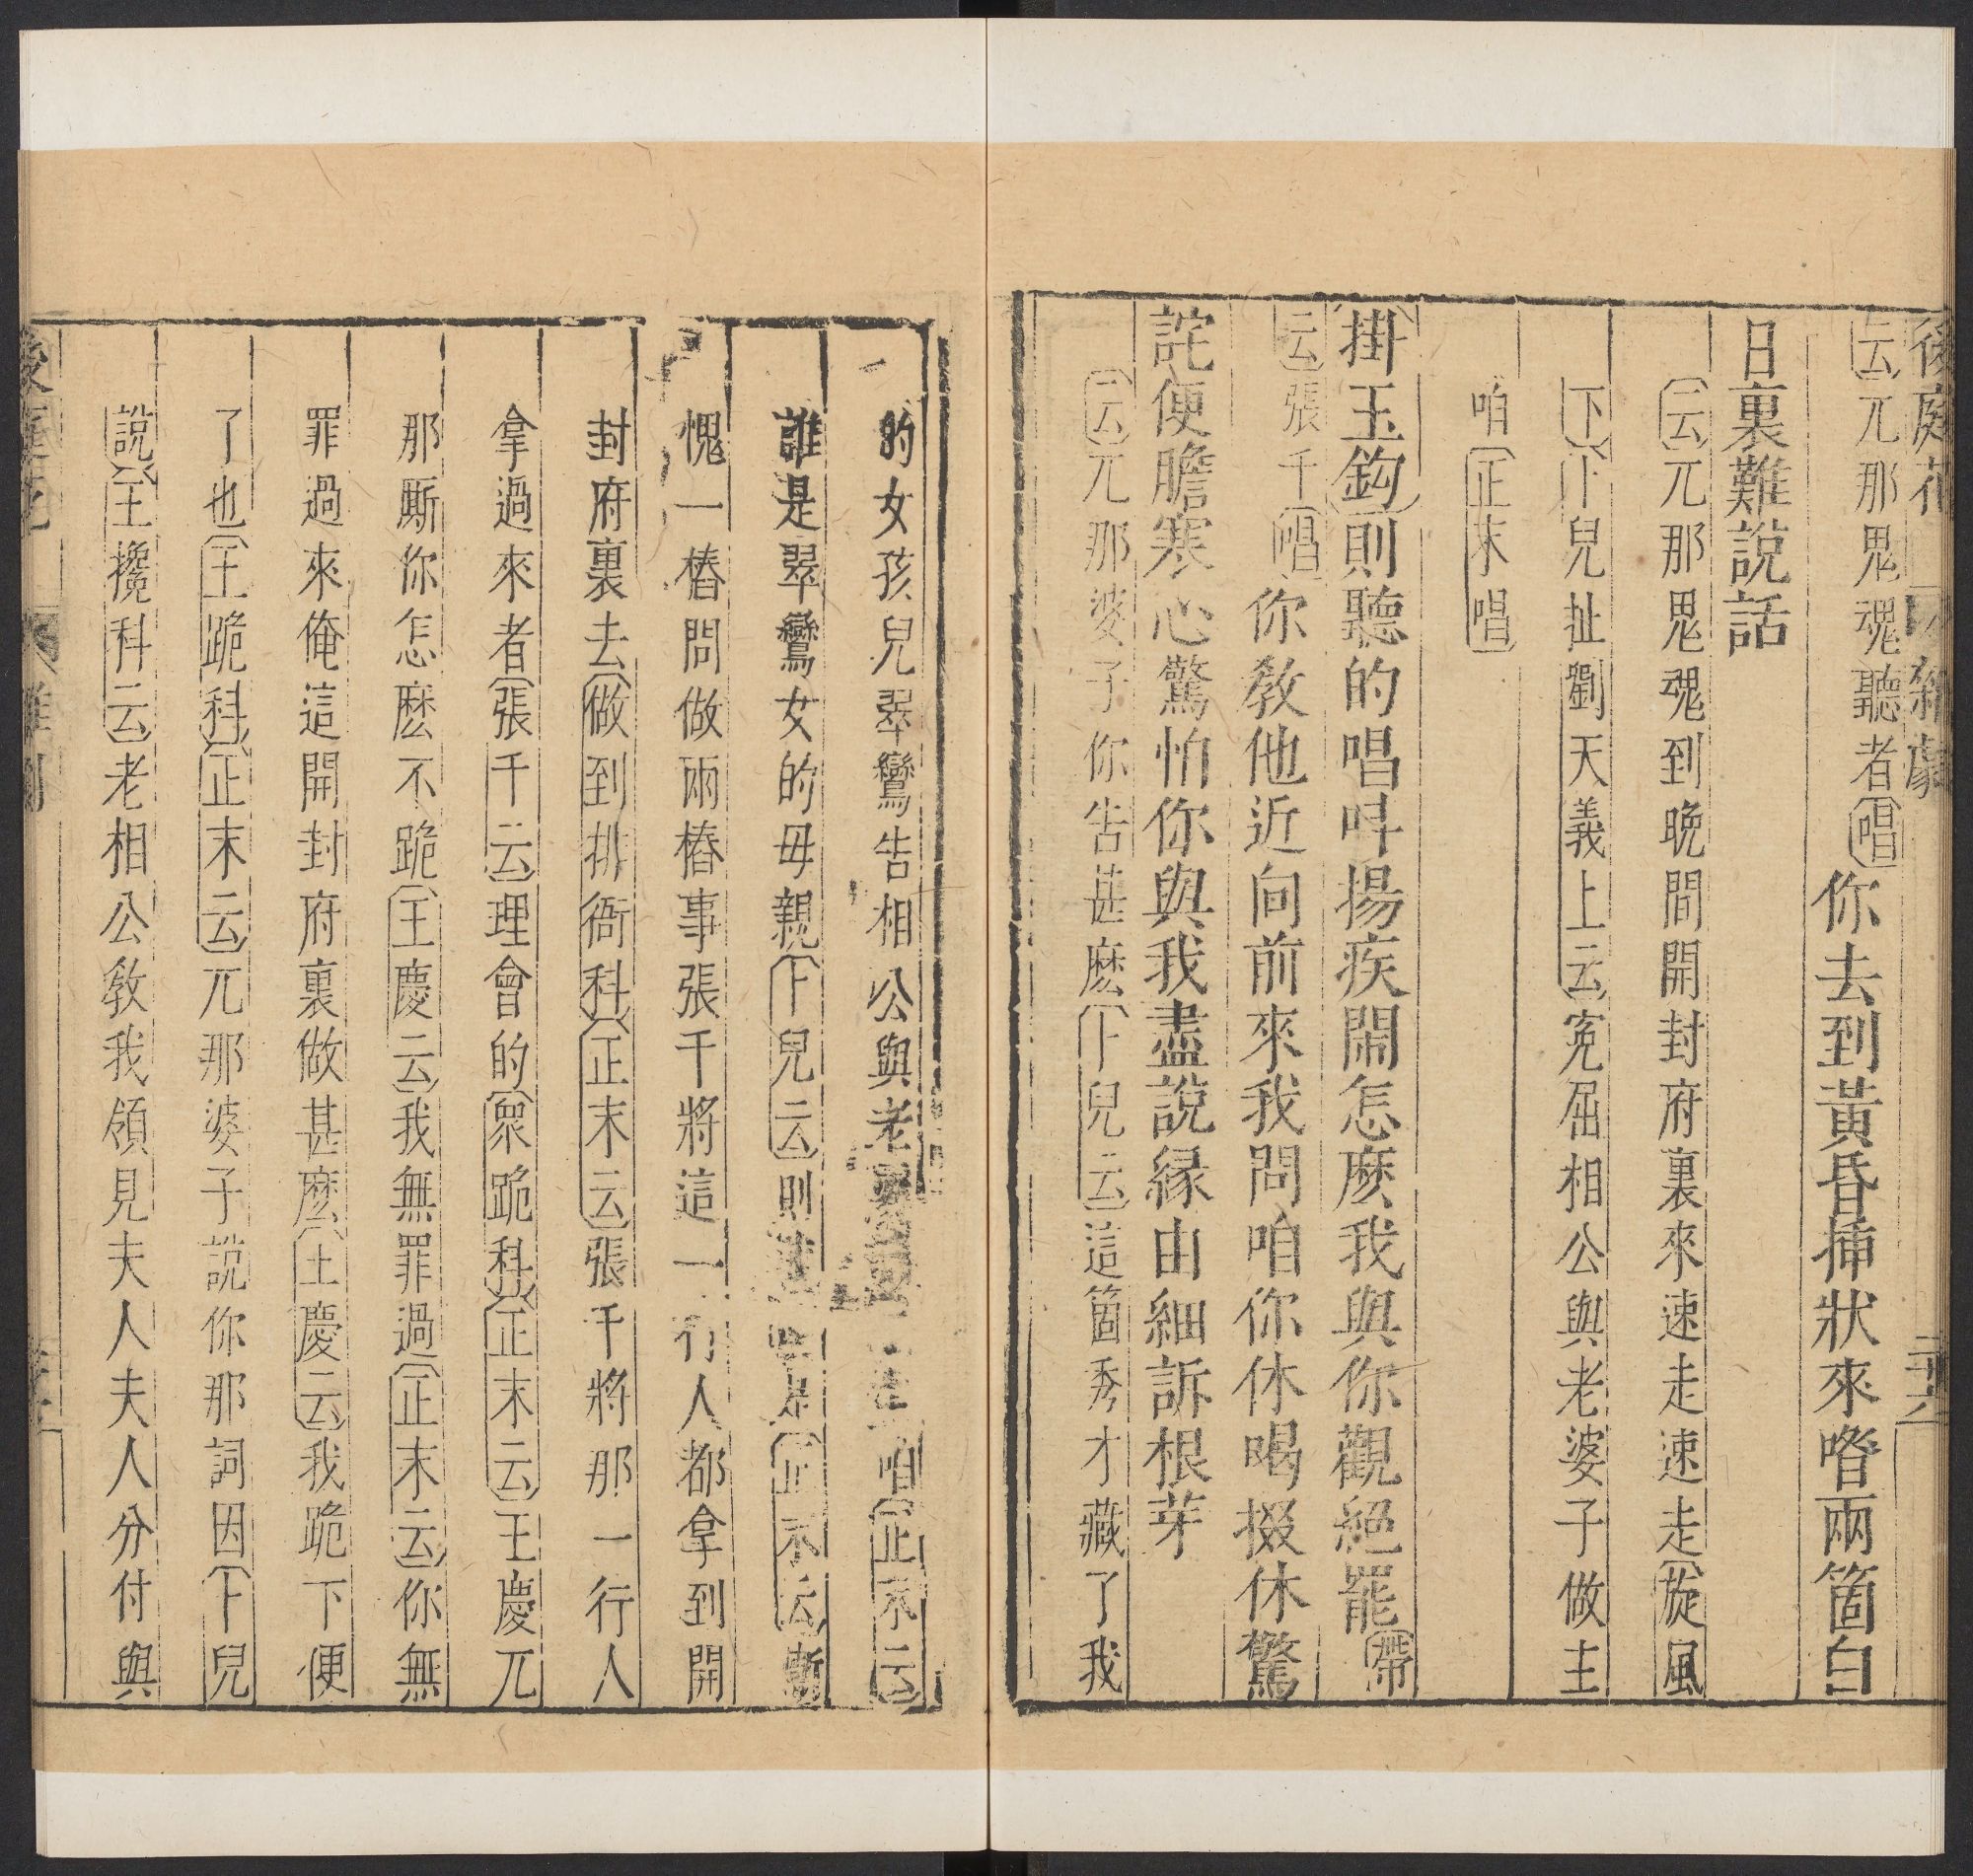 後庭花 雜劇 二十六
云兀那鬼魂聽者唱你去到黃昏插狀來喒兩箇白
日裏難說話
云兀那鬼魂到晚間開封府裏來速走速走旋風
下卜兒扯劉天義上云寃屈相公與老婆子做主
咱正末唱
掛玉鈎則聽的唱呌揚疾鬧怎麽我與你觀絕罷帶
云張千唱你教他近向前來我問咱你休喝掇休驚
詫便膽寒心驚怕你與我盡說緣由細訴根芽
云兀那婆子你告甚麽卜兒云這箇秀才藏了我
的女孩兒翠鸞告相公與老婆咱正末云
誰是翠鸞女的母親卜兒云則是正末云慙
愧一樁問做兩樁事張千將這一行人都拿到開
封府裏去做到排衙科正末云張千將那一行人
拿過來者張千云理會的衆跪科正末云王慶兀
那厮你怎麽不跪王慶云我無罪過正末云你無
罪過來俺這開封府裏做甚麽王慶云我跪下便
了也王跪科正末云兀那婆子說你那詞因卜兒
說王攙科云老相公教我領見夫人夫人分付與